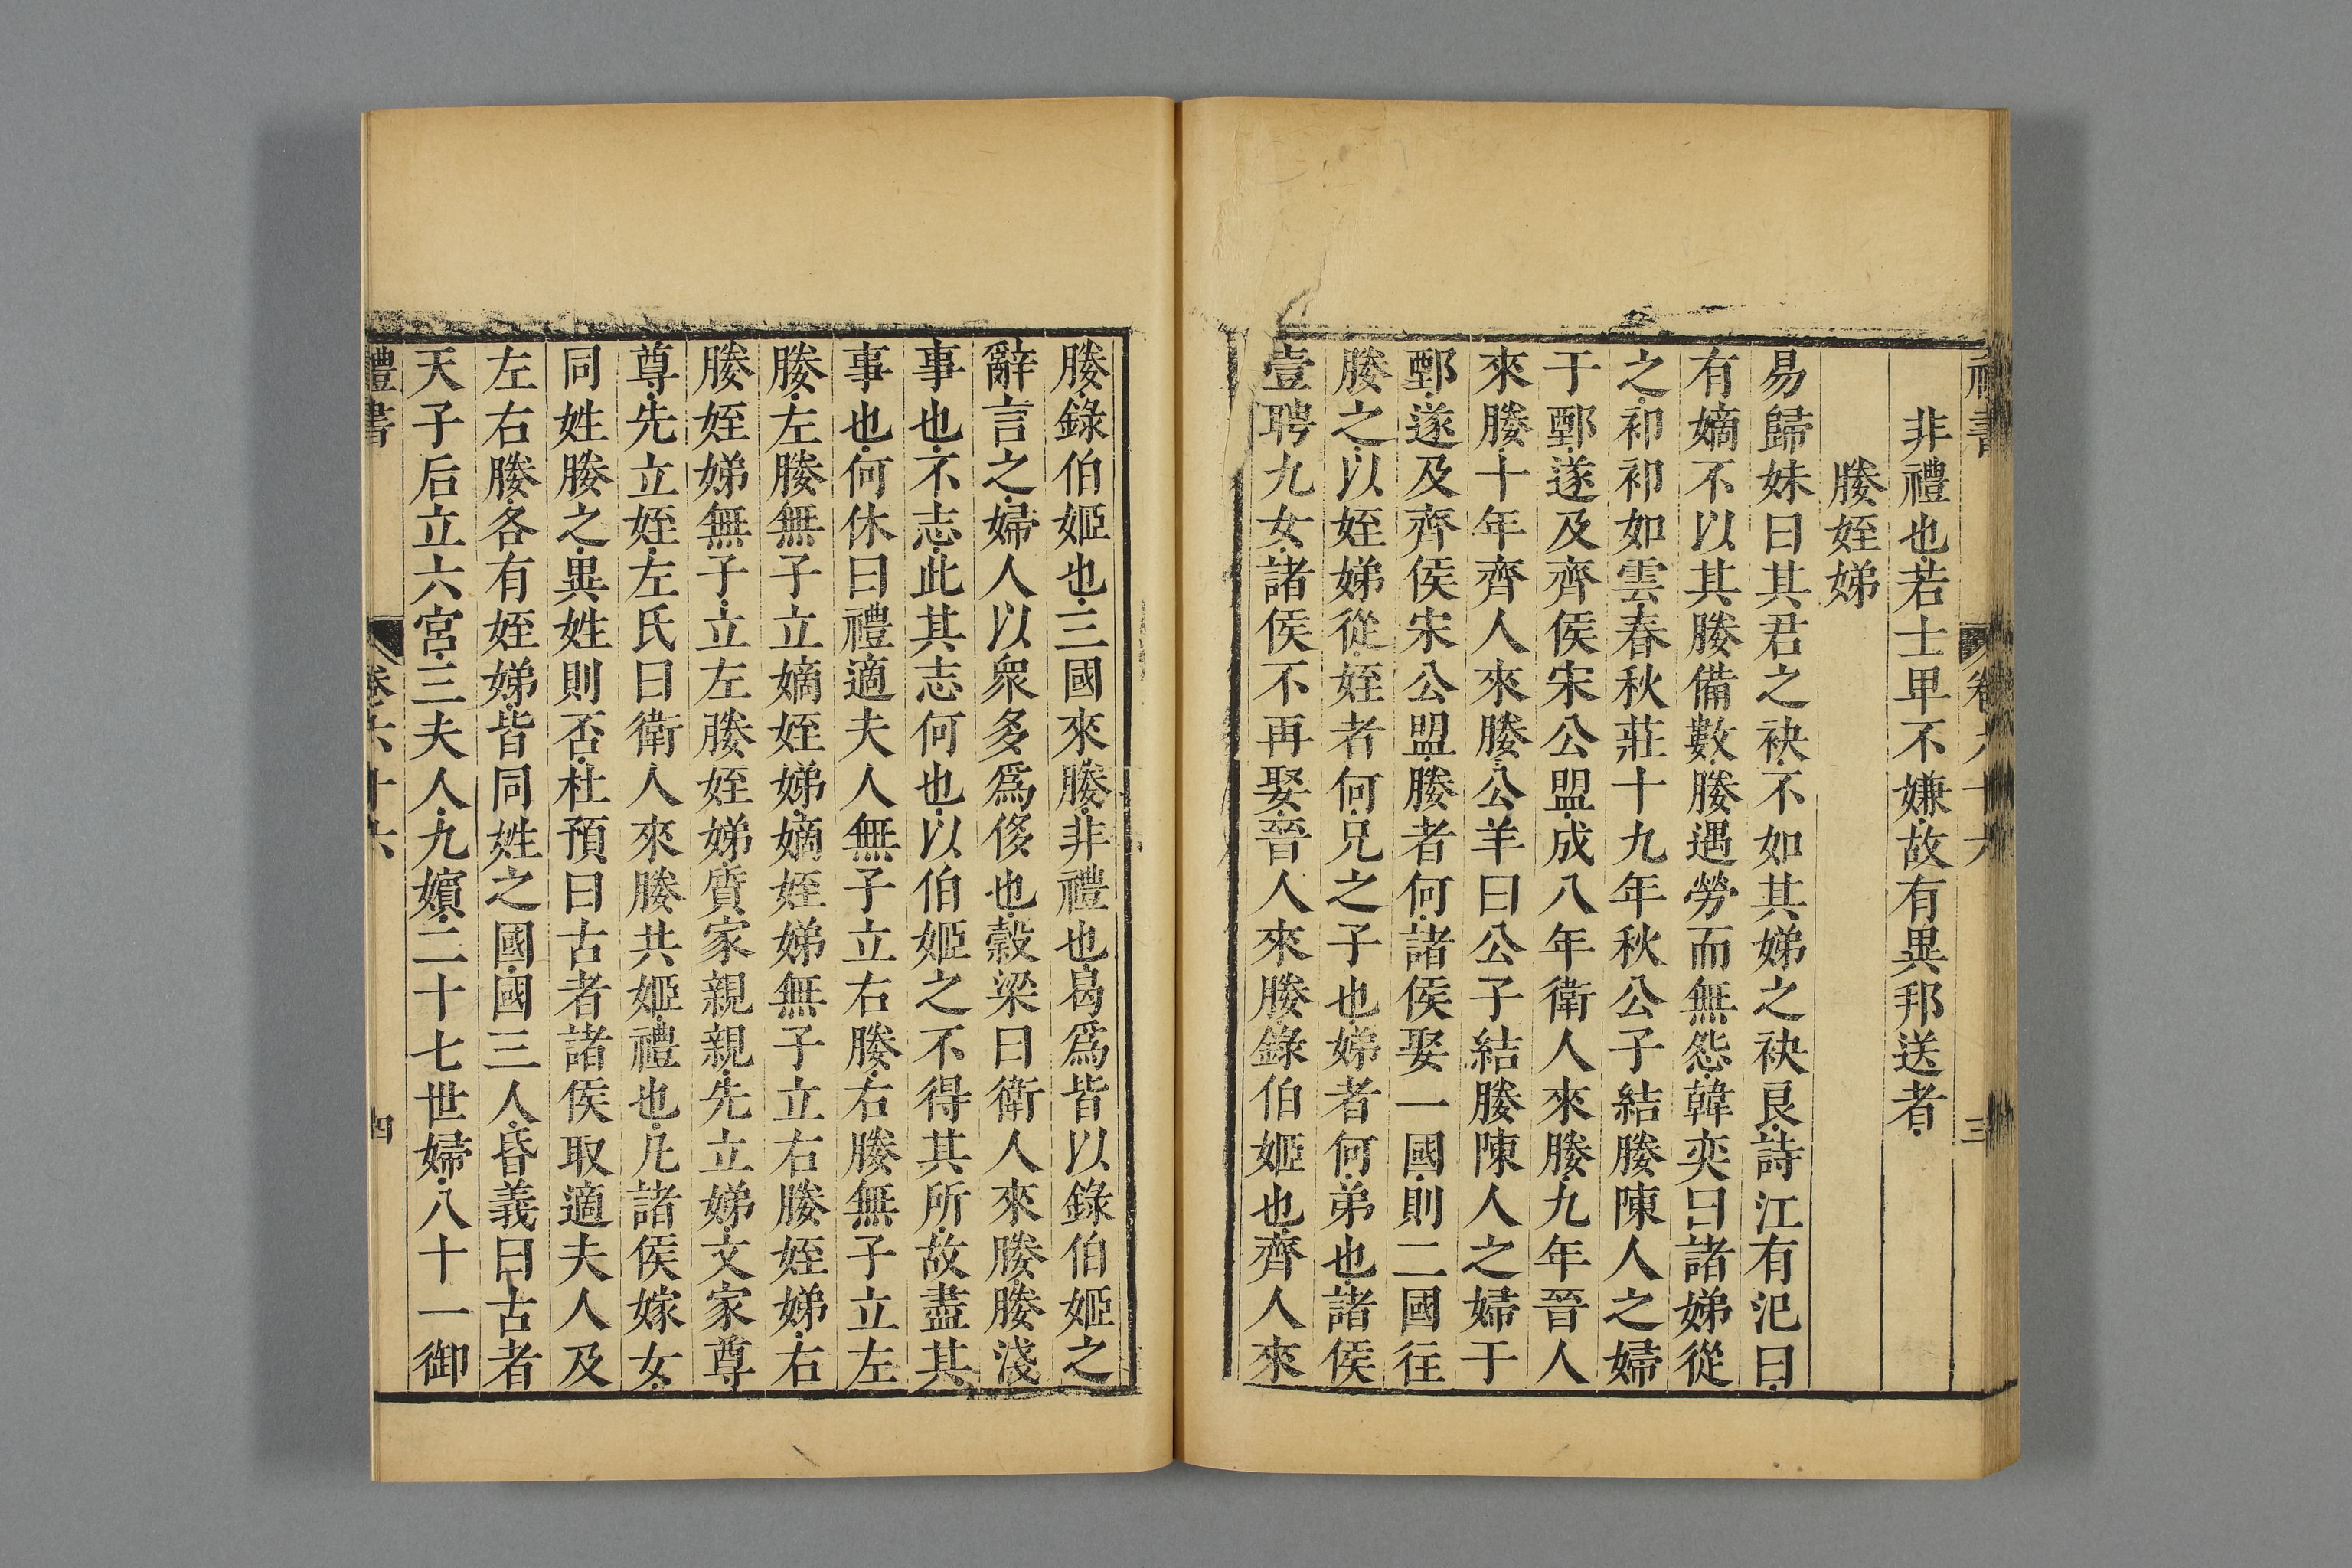 禮書
卷六十六
三
非禮也若士卑不嫌故有異邦送者
媵姪娣
易歸妹曰其君之袂不如其娣之袂良詩江有汜曰
有嫡不以其媵備數媵遇勞而無怨韓奕曰諸娣從
之祁祁如雲春秋莊十九年秋公子結媵陳人之婦
于鄄遂及齊侯宋公盟成八年衛人來媵九年晉人
來媵十年齊人來媵公羊曰公子結媵陳人之婦于
鄄遂及齊侯宋公盟媵者何諸侯娶一國則二國往
媵之以姪娣從姪者何兄之子也娣者何弟也諸侯
壹聘九女諸侯不再娶晉人來媵錄伯姬也齊人來
媵錄伯姬也三國來媵非禮也曷爲皆以錄伯姬之
辭言之婦人以衆多爲侈也糓梁曰衛人來媵媵淺
事也不志此其志何也以伯姬之不得其所故盡其
事也何休曰禮適夫人無子立右媵右媵無子立左
媵左媵無子立嫡姪娣嫡姪娣無子立右媵姪娣右
媵姪娣無子立左媵姪娣質家親親先立娣文家尊
尊先立姪左氏曰衛人來媵共姬禮也凡諸侯嫁女
同姓媵之異姓則否杜預曰古者諸侯取適夫人及
左右媵各有姪娣皆同姓之國國三人昏義曰古者
天子后立六宮三夫人九嬪二十七世婦八十一御
禮書
卷六十六
四